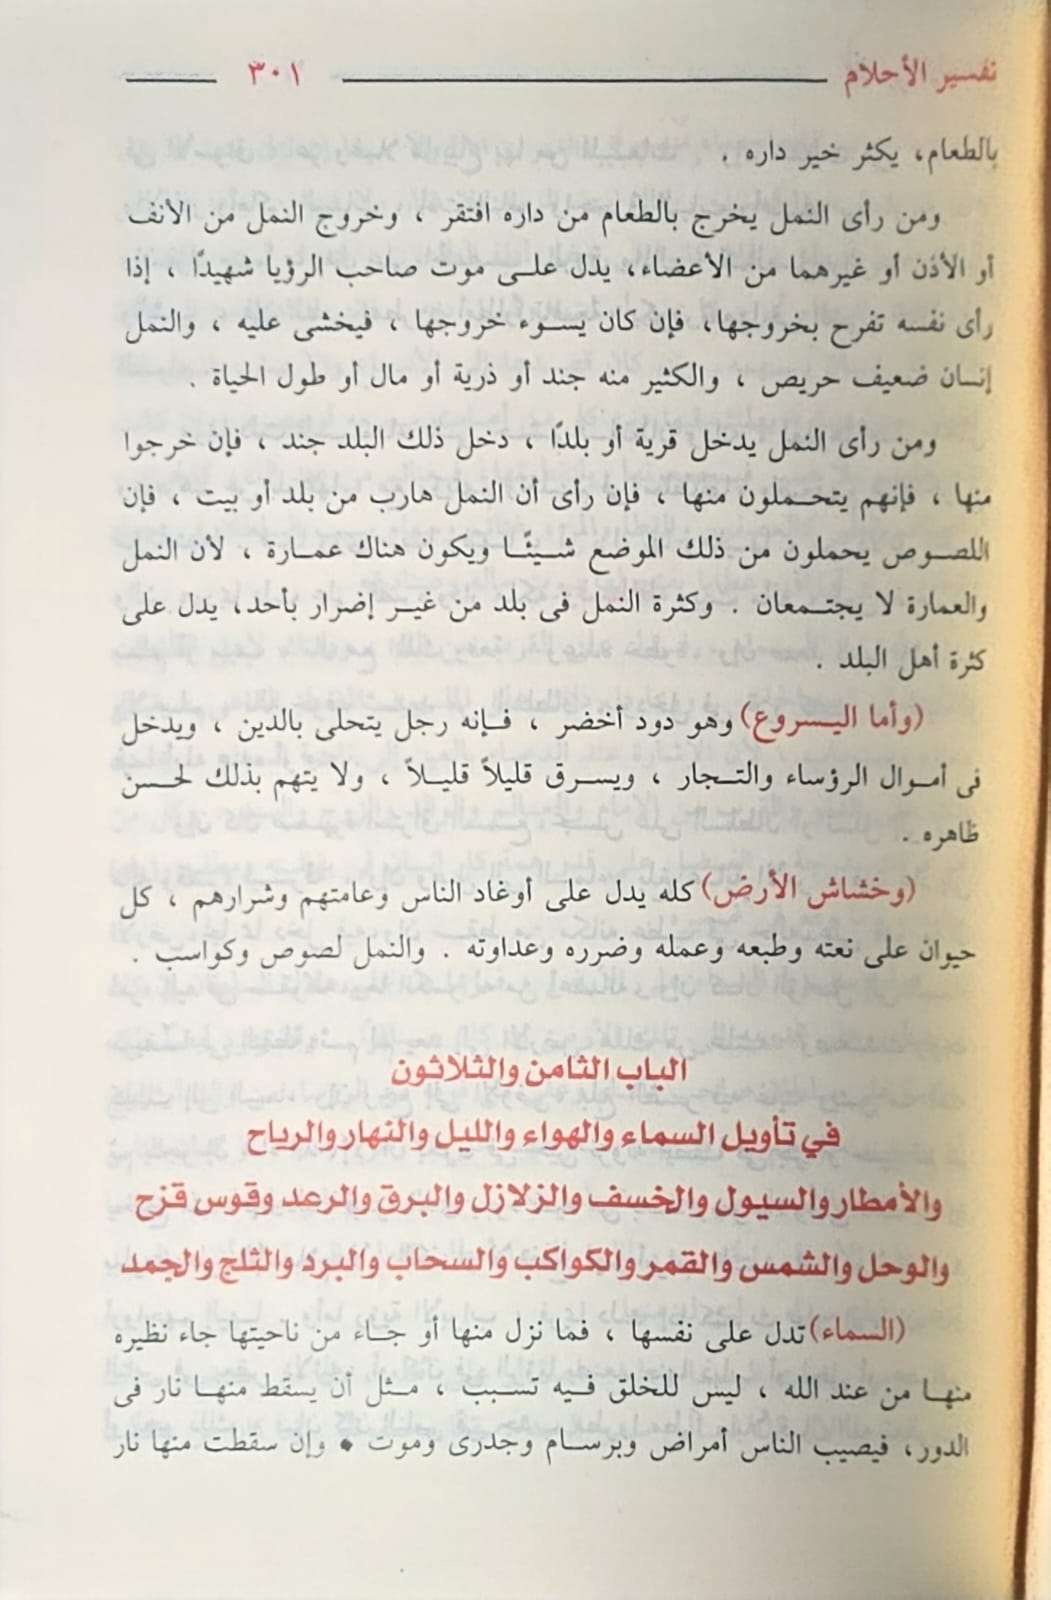 تفسير الأحلام ٣٠١
بالطعام، يكثر خير داره .
ومن رأى النمل يخرج بالطعام من داره افتقر ، وخروج النمل من الأنف
أو الأذن أو غيرهما من الأعضاء، يدل على موت صاحب الرؤيا شهيدًا ، إذا
رأى نفسه تفرح بخروجها، فإن كان يسوء خروجها ، فيخشى عليه ، والنمل
إنسان ضعيف حريص ، والكثير منه جند أو ذرية أو مال أو طول الحياة .
ومن رأى النمل يدخل قرية أو بلدًا ، دخل ذلك البلد جند ، فإن خرجوا
منها ، فإنهم يتحملون منها ، فإن رأى أن النمل هارب من بلد أو بيت ، فإن
اللصوص يحملون من ذلك الموضع شيئًا ويكون هناك عمارة ، لأن النمل
والعمارة لا يجتمعان . وكثرة النمل فى بلد من غير إضرار بأحد، يدل على
كثرة أهل البلد .
(وأما اليسروع) وهو دود أخضر ، فإنه رجل يتحلى بالدين ، ويدخل
فى أموال الرؤساء والتجار ، ويسرق قليلاً قليلاً ، ولا يتهم بذلك لحسن
ظاهره .
(وخشاش الأرض) كله يدل على أوغاد الناس وعامتهم وشرارهم ، كل
حيوان على نعته وطبعه وعمله وضرره وعداوته . والنمل لصوص وكواسب .
الباب الثامن والثلاثون
في تأويل السماء والهواء والليل والنهار والرياح
والأمطار والسيول والخسف والزلازل والبرق والرعد وقوس قزح
والوحل والشمس والقمر والكواكب والسحاب والبرد والثلج والجمد
(السماء) تدل على نفسها ، فما نزل منها أو جاء من ناحيتها جاء نظيره
منها من عند الله ، ليس للخلق فيه تسبب ، مثل أن يسقط منها نار فى
الدور، فيصيب الناس أمراض وبرسام وجدرى وموت • وإن سقطت منها نار